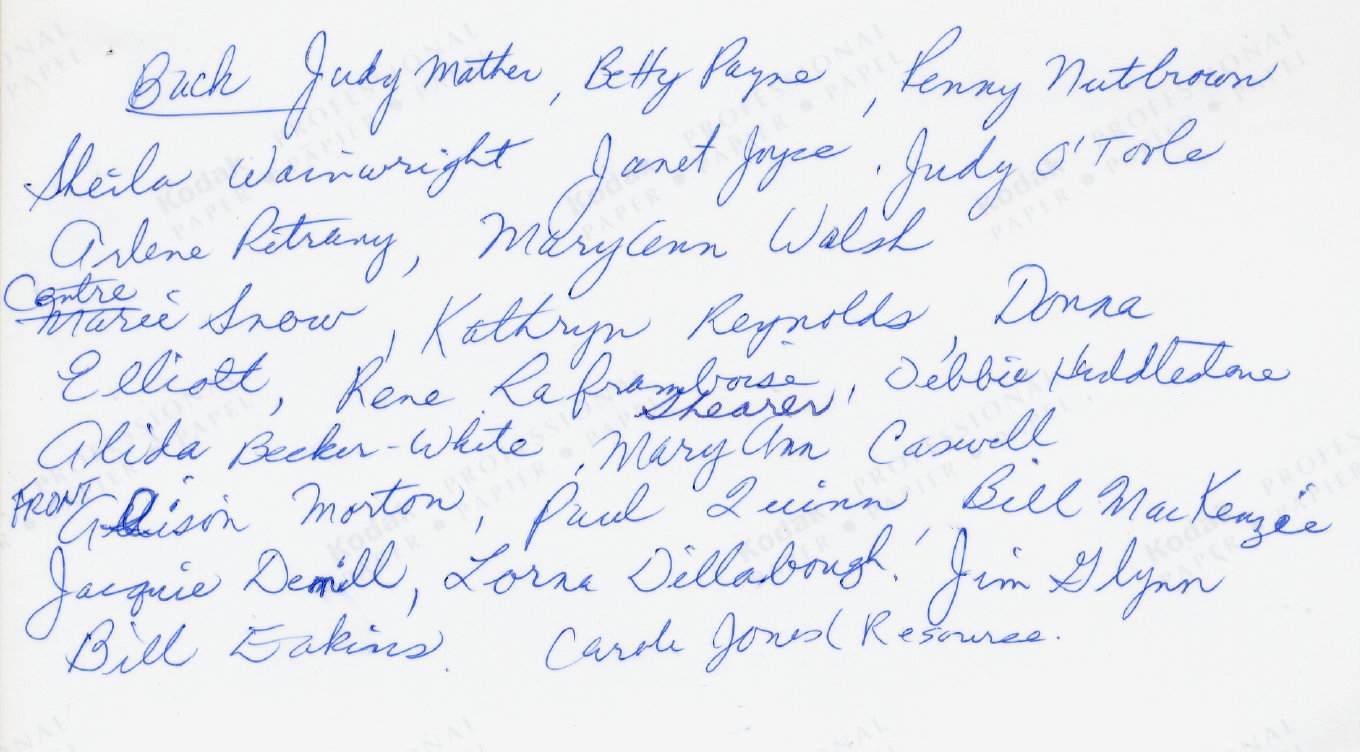 Back Judy Mather, Betty Payne, Penny Nutbrown
Sheila Wainwright Janet Joyce, Judy O'Toole
Arlene Petrany, MaryAnn Walsh
Centre
Marie Snow, Kathryn Reynolds, Donna
Elliott, Rene Laframboise, Debbie Huddlestone
Shearer
Alida Becker-White, Mary Ann Caswell
FRONT Alison Morton, Paul Quinn, Bill MacKenzie
Jacquie Demill, Lorna Dillabough, Jim Glynn
Bill Eakins. Carole Jones (Resource.